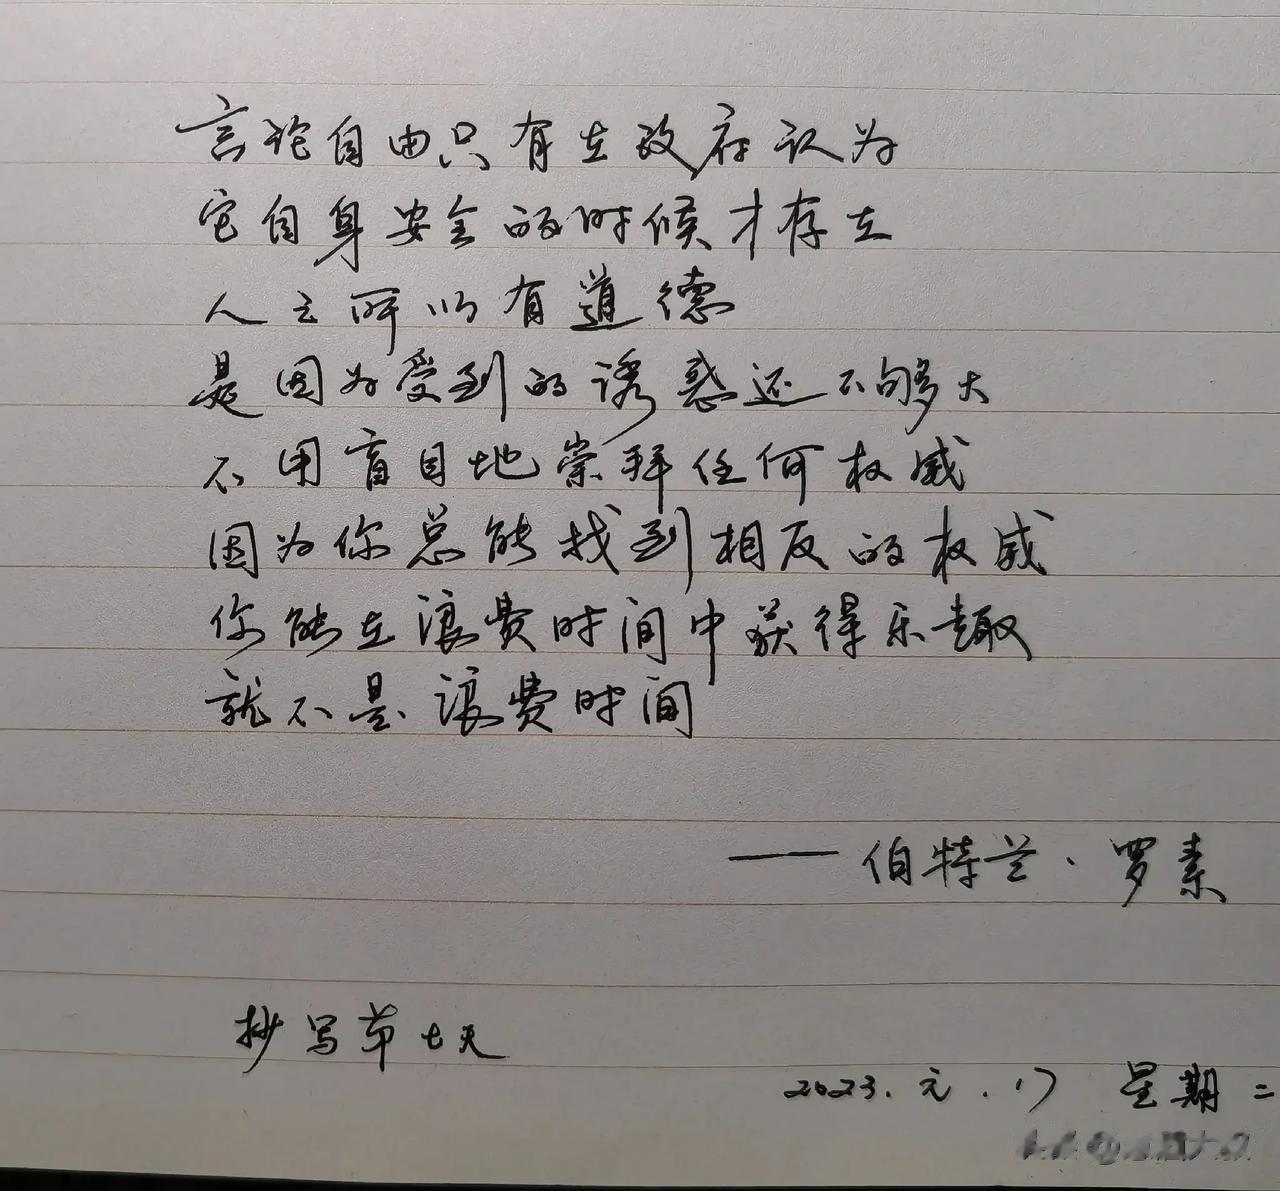 言论自由只有在政府认为
它自身安全的时候才存在
人之所以有道德
是因为受到的诱惑还不够大
不用盲目地崇拜任何权威
因为你总能找到相反的权威
你能在浪费时间中获得乐趣
就不是浪费时间
——伯特兰·罗素
抄写第七天
2023.元.17 星期二